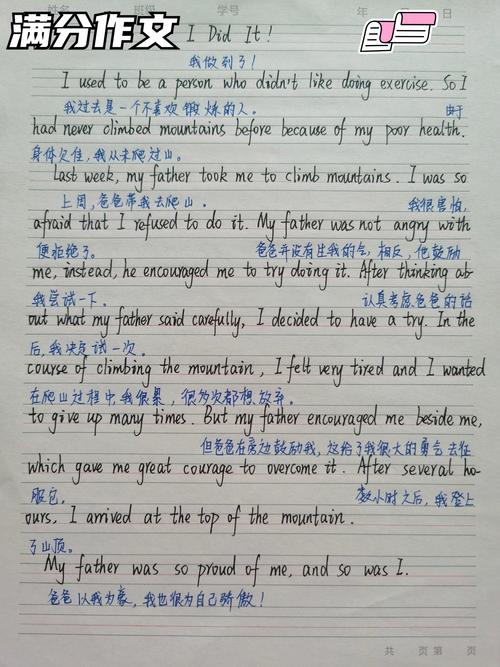 姓名 班级 学号 年 月 日
满分作文
I Did It!
我做到了!
I used to be a person who didn't like doing exercise. So I
我过去是一个不喜欢锻炼的人。 由于
had never climbed mountains before because of my poor health.
身体欠佳,我从未爬过山。
Last week, my father took me to climb mountains. I was so
上周,爸爸带我去爬山。 我很害怕,
afraid that I refused to do it. My father was not angry with
便拒绝了。 爸爸并没有生我的气,相反,他鼓励
me, instead, he encouraged me to try doing it. After thinking ab-
我尝试一下。 认真考虑爸爸的话
out what my father said carefully, I decided to have a try. In the
后,我决定试一次。
course of climbing the mountain, I felt very tired and I wanted
在爬山过程中,我很累,很多次都想放弃。
to give up many times. But my father encouraged me beside me,
但爸爸在旁边鼓励我,这给了我很大的勇气去征
which gave me great courage to overcome it. After several ho-
服它。 数小时之后,我登上
ours, I arrived at the top of the mountain.
了山顶。
My father was so proud of me, and so was I.
爸爸以我为豪,我也很为自己骄傲!
共 页 第 页